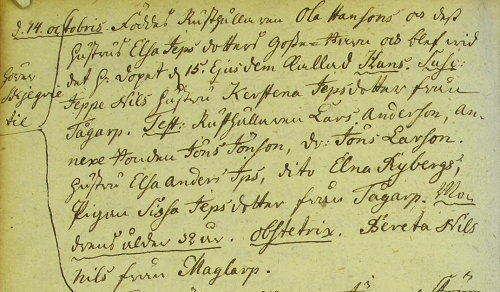 d. 14. octobris. Föddes Rusthållaren Ola Hansons och dess
hustrus Elsa Jeps dotters Gosse-Barn och blef wid
det h: dopet d. 15. Ejusdem kallad Hans. Susc:
Jeppe Nils hustru Kerstena Jeps dotter från
Tågarp. Test: Rusthållaren Lars Anderson, An-
nexe Bonden Jöns Jönson, dr: Jöns Larson.
hustru Elsa Anders Jps, dito Elna Rybergs,
Pigan Sissa Jeps dotter från Tågarp. Mo-
drens ålder 32 år. Obstetrix. Bereta Nils
Nils från Maglarp.